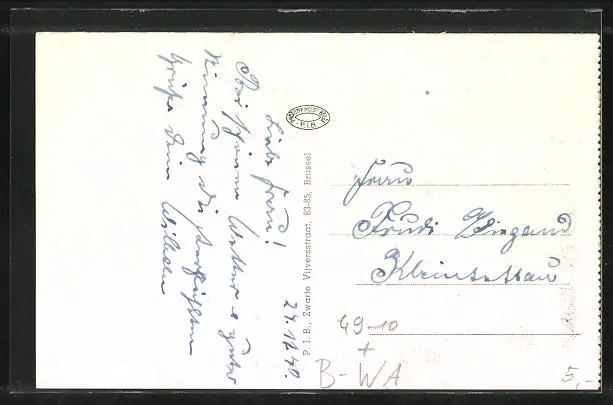 24.12.40.
Liebe Frau!
Bei schönem Wetter u guter
Stimmung die herzlichsten
Grüße Dein Wilhelm
P.I.B., Zwarte Vijversstraat, 83-85, Brussel
P.I.B.
Frau
Trudi Wiegand
Kleintettau
49-10
+
B-WA
5,-